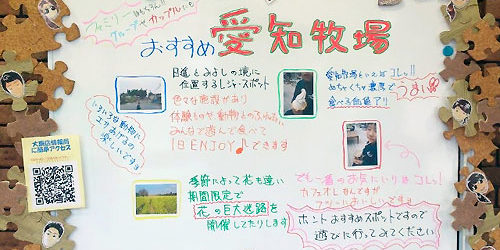 ファミリーはもちろん!!
グループ、カップルにも
おすすめ 愛知牧場
日進とみよしの境に
位置するレジャースポット
色々な施設があり
体験ものや動物とのふれあい
みんなで遊んで食べて
1日ENJOY♪できます
愛知牧場といえばコレッ!!
めちゃくちゃ濃厚で
うまい
食べる価値アリ
いろいろな動物に
会えるので
楽しいですョ
大府店情報局
に簡単アクセス
季節によって花も違い
期間限定で
花の巨大迷路を
開催してたりします
でも一番のお気にいりはコレっ!
カフェオレなんですが
フツーにおいしいです
ホントおすすめスポットですので
遊びに行ってみてください